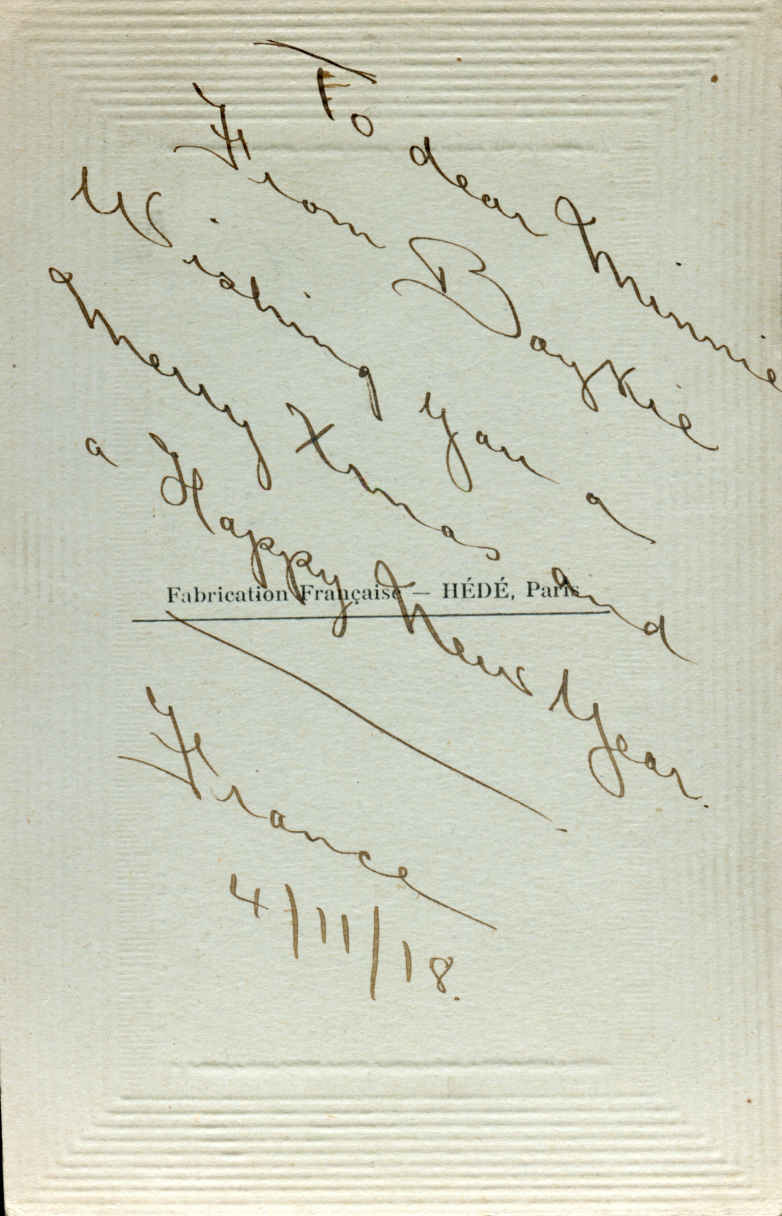 To dear Minnie
From Baykie
Wishing you a
Merry Xmas and
a Happy New Year.
Fabrication Française — HÉDÉ, Paris
France
4/11/18.